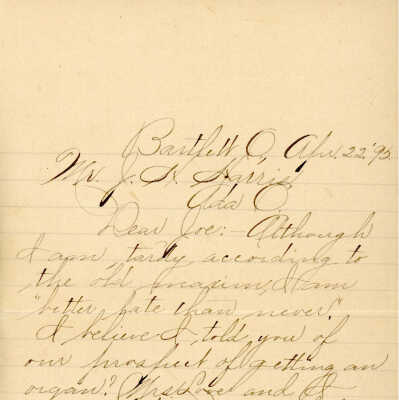 Bartlett O, Apr. 22 '95
Mr. J. S. Harris,
Ada O.
Dear Joe:- Although
I am "tardy" according to
the old maxim, I am
"better late than never."
I believe I told you of
our prospect of getting an
organ? and